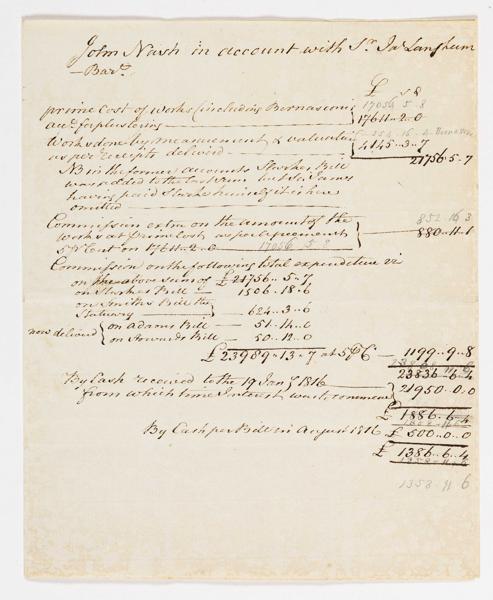 John Nash in account with Sr. Jas Langham
Bart.
£ s d
prime Cost of works (including Bernasconi 17056 5 8
acct. for plastering 17611 .. 2 .. 0
Works done by measurement & valuation
as per receipts delivered 4145 .. 3 .. 7
21756 .. 5 .. 7
NB in the former accounts Starkes Bill
was added to the but Sir James
having paid Starke himself it is here
omitted
Commission extra on the amount of the 852 16 3
works at prime cost, as per agreement 880 .. 11 .. 1
5 P Cent on 17611 .. 2 .. 0 17056 5 8
Commission on the following total expenditure viz
on the above sum of £ 21756 .. 5 .. 7
on Starkes Bill 1506 .. 18 .. 6
on Smiths Bill the
Statuary 624 .. 3 .. 6
now delivered on Adams Bill 51 .. 14 .. 0
on Bill 50 .. 12 .. 0
£ 23989 .. 13 .. 7 at 5 P C 1199 .. 9 .. 8
23836 .. 6 .. 4
By Cash received to the 19 Jany 1816 21950 .. 0 .. 0
from which time Interest was to commence
£ 1886 .. 6 .. 4
By Cash per Bill in August 1816 £ 500 .. 0 .. 0
£ 1386 .. 6 .. 4
1358 .. 11 6